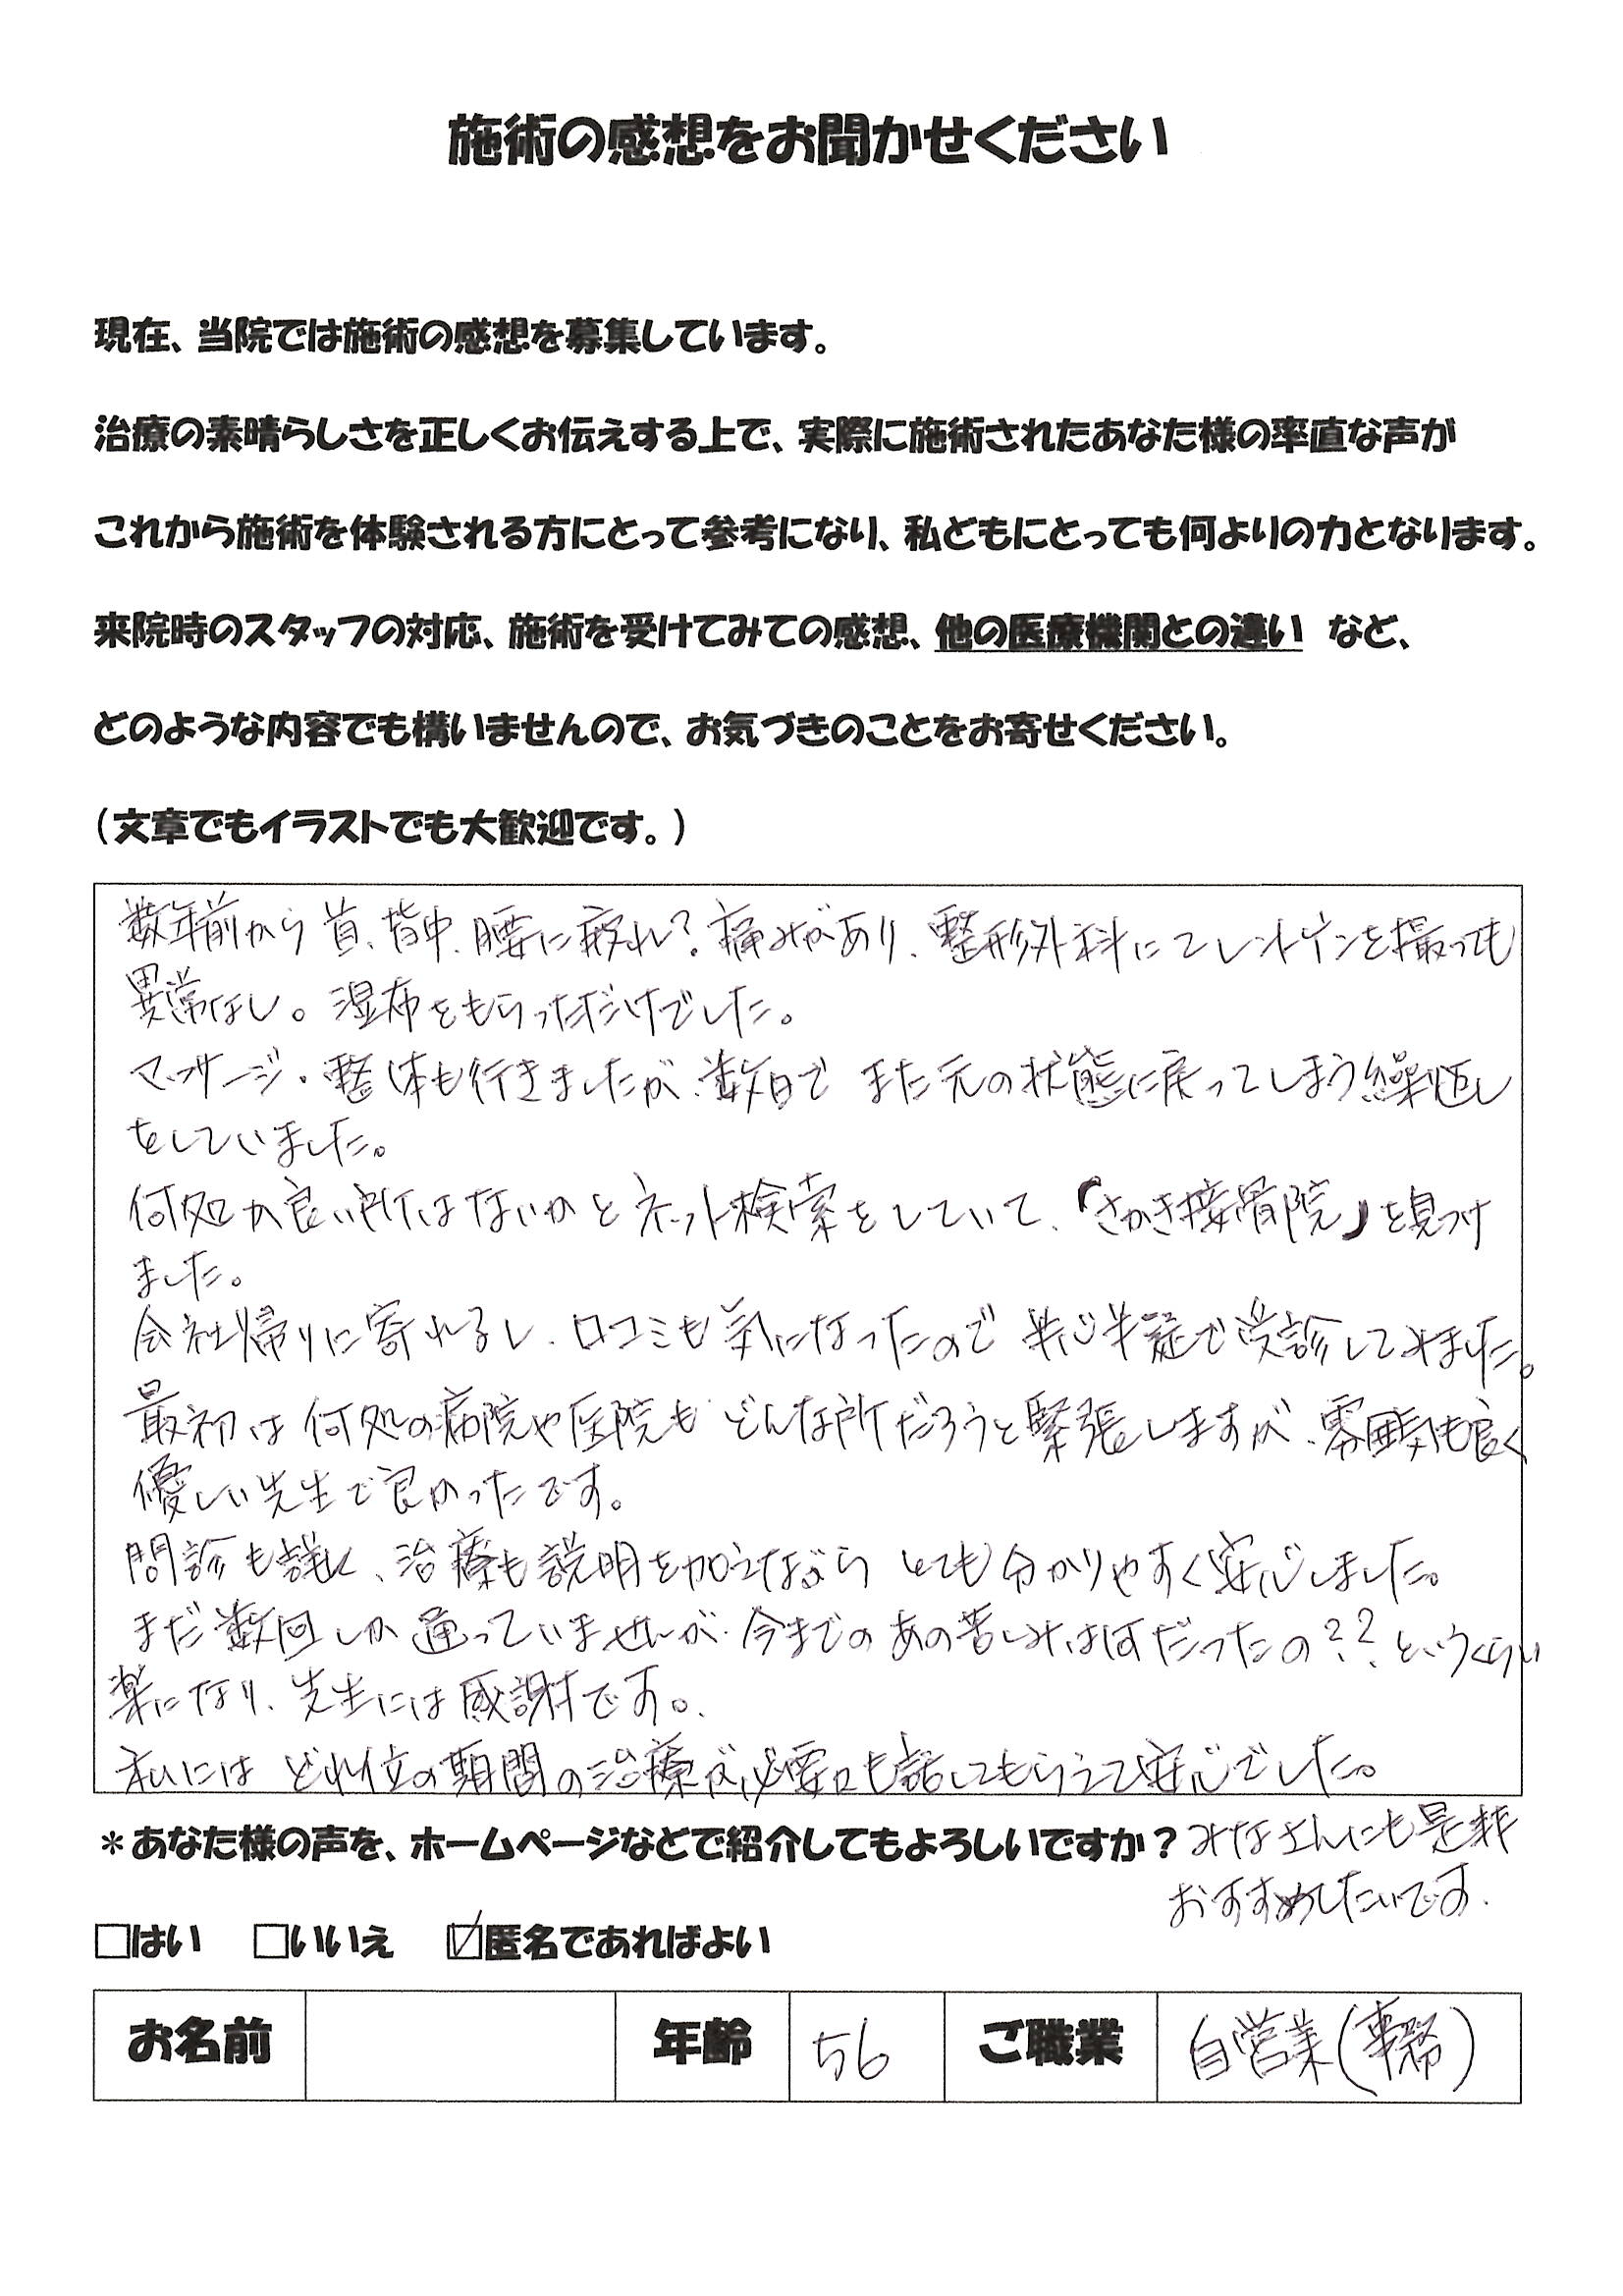 施術の感想をお聞かせください
現在、当院では施術の感想を募集しています。
治療の素晴らしさを正しくお伝えする上で、実際に施術されたあなた様の率直な声が
これから施術を体験される方にとって参考になり、私どもにとっても何よりの力となります。
来院時のスタッフの対応、施術を受けてみての感想、他の医療機関との違い など、
どのような内容でも構いませんので、お気づきのことをお寄せください。
(文章でもイラストでも大歓迎です。)
数年前から首、背中、腰に疲れ?痛みがあり、整形外科にてレントゲンを撮っても
異常なし。湿布をもらっただけでした。
マッサージ・整体も行きましたが、数日で また元の状態に戻ってしまう繰返し
をしていました。
何処か良い所はないかとネット検索をしていて、「さかき接骨院」を見つけ
ました。
会社帰りに寄れるし、口コミも気になったので 半心半疑で受診してみました。
最初は何処の病院や医院も どんな所だろうと緊張しますが、雰囲気も良く
優しい先生で良かったです。
問診も詳しく、治療も説明を加えながら とても分かりやすく安心しました。
まだ数回しか通っていませんが、今までのあの苦しみは何だったの??というくらい
楽になり、先生には感謝です。
私には どれ位の期間の治療が必要かも話してもらえて安心でした。
*あなた様の声を、ホームページなどで紹介してもよろしいですか?
みなさんにも是非
おすすめしたいです.
□はい □いいえ ☑匿名であればよい
お名前 年齢 56 ご職業 自営業(事務)